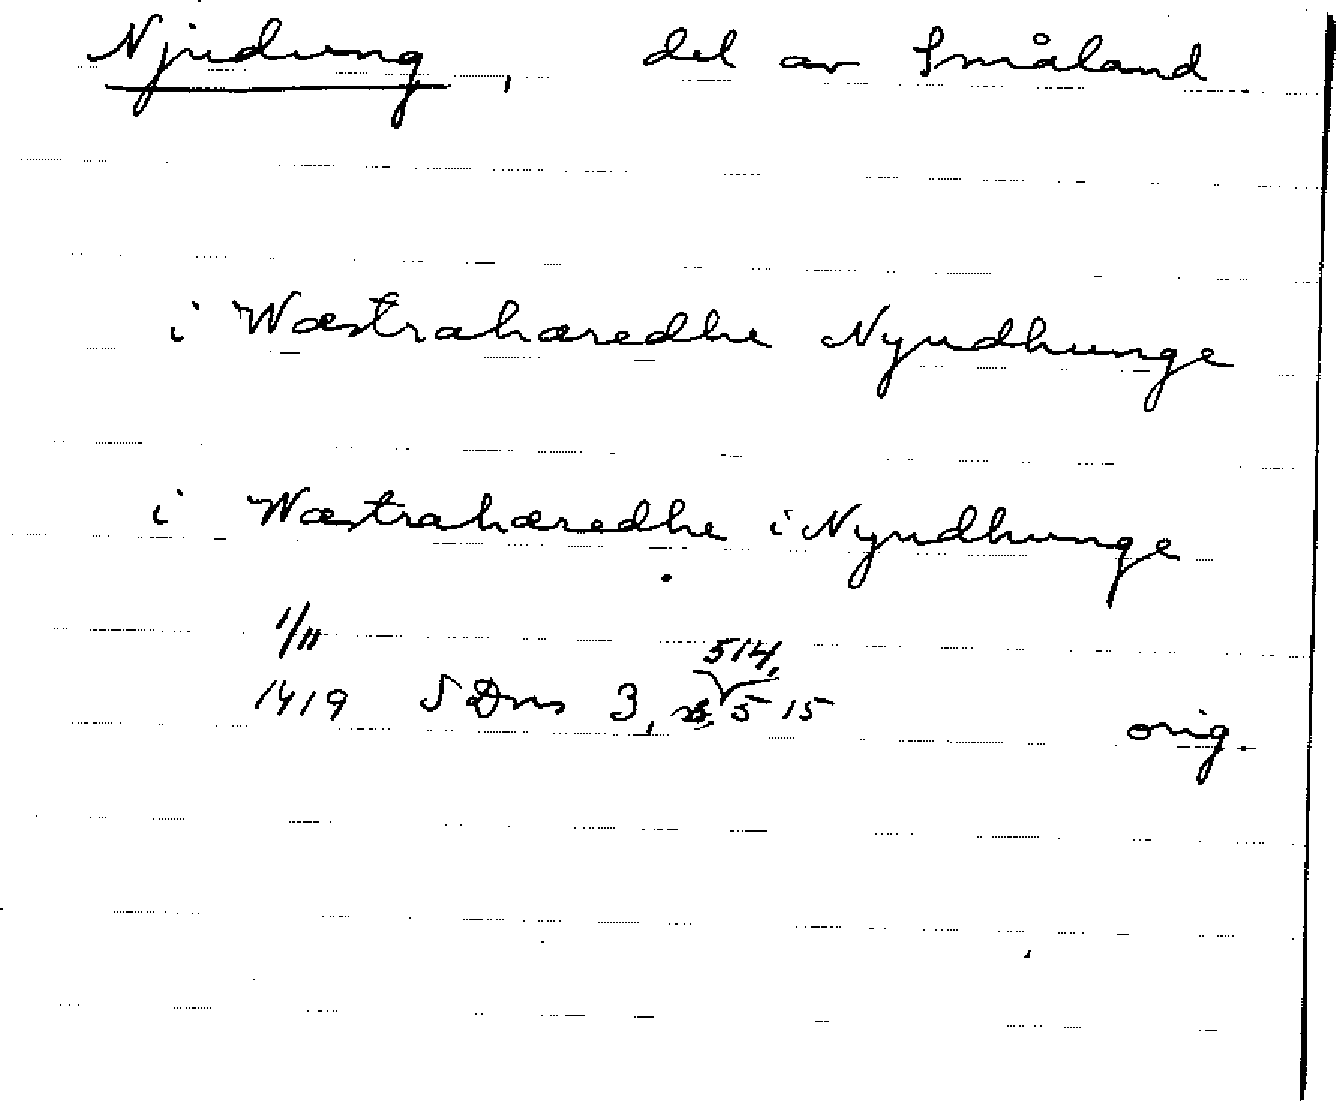 Njudung, del av Småland
i Wæstrahæredhe Nyudhunge
i Wæstrahæredhe i Nyudhunge
1/11
514,
1419 SDns 3, 515 orig.